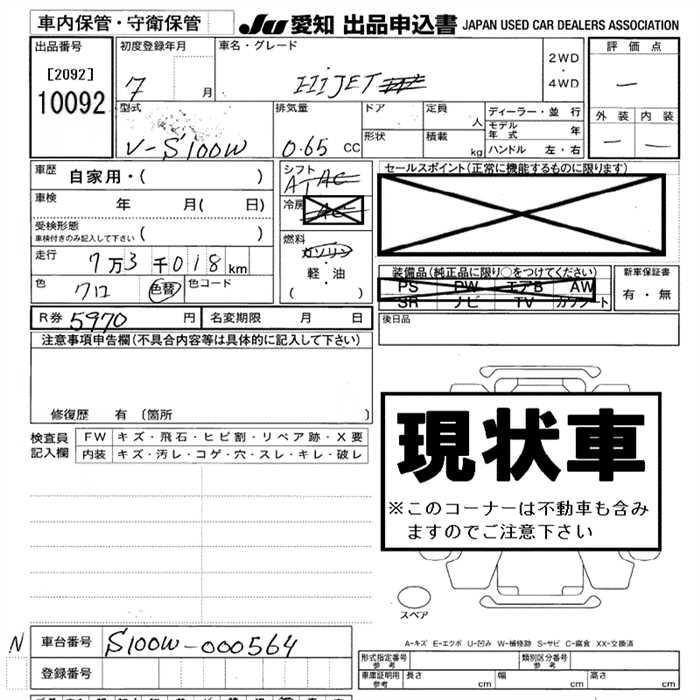 車内保管・守衛保管
JU 愛知 出品申込書 JAPAN USED CAR DEALERS ASSOCIATION
出品番号
[2092]
10092
初度登録年月
7 月
車名・グレード
HIJET
2WD
・
4WD
評価点
—
外装 内装
— —
型式
V-S100W
排気量
0.65 CC
ドア
形状
定員 人
積載 kg
ディーラー・並行
モデル年式 年
ハンドル 左・右
車歴 自家用・( )
車検 年 月( 日)
受検形態
車検付きのみ記入して下さい ( )
走行 7万3千018km
色 クロ 色替 色コード
シフト
冷房 AC
燃料
ガソリン
・
軽・油
( )
セールスポイント(正常に機能するものに限ります)
装備品(純正品に限り○をつけてください)
PS PW エアB AW
SR ナビ TV カワシート
新車保証書
有・無
R券 5970 円 名変期限 月 日
後日品
注意事項申告欄(不具合内容等は具体的に記入して下さい)
修復歴 有 〔箇所 〕
検査員
記入欄
FW キズ・飛石・ヒビ割・リペア跡・X要
内装 キズ・汚レ・コゲ・穴・スレ・キレ・破レ
現状車
※このコーナーは不動車も含み
ますのでご注意下さい
スペア
N 車台番号 S100W-000564
登録番号
A-キズ E-エクボ U-凹み W-補修跡 S-サビ C-腐食 XX-交換済
形式指定番号
参考
類別区分番号
参考
車庫証明用
参考
長さ cm 幅 cm 高さ cm